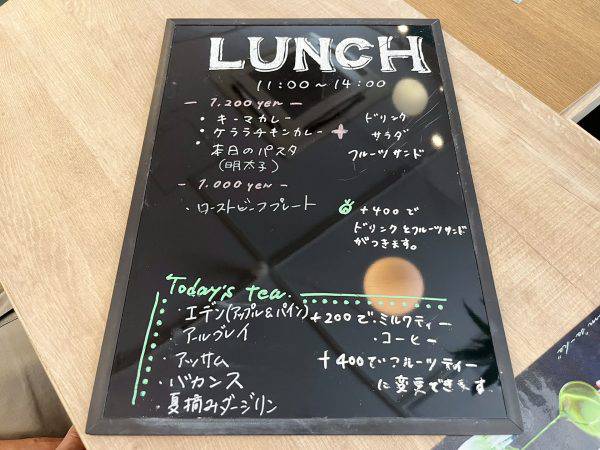 LUNCH
11:00〜14:00
— 1.200 yen —
・キーマカレー ドリンク
・ケララチキンカレー + サラダ
・本日のパスタ フルーツサンド
(明太子)
— 1.000 yen —
・ローストビーフプレート +400で
ドリンクとフルーツサンド
がつきます。
Today's tea.
・エデン(アップル&パイン) +200で・ミルクティー
・アールグレイ ・コーヒー
・アッサム +400でフルーツティー
・バカンス に変更できます
・夏摘みダージリン